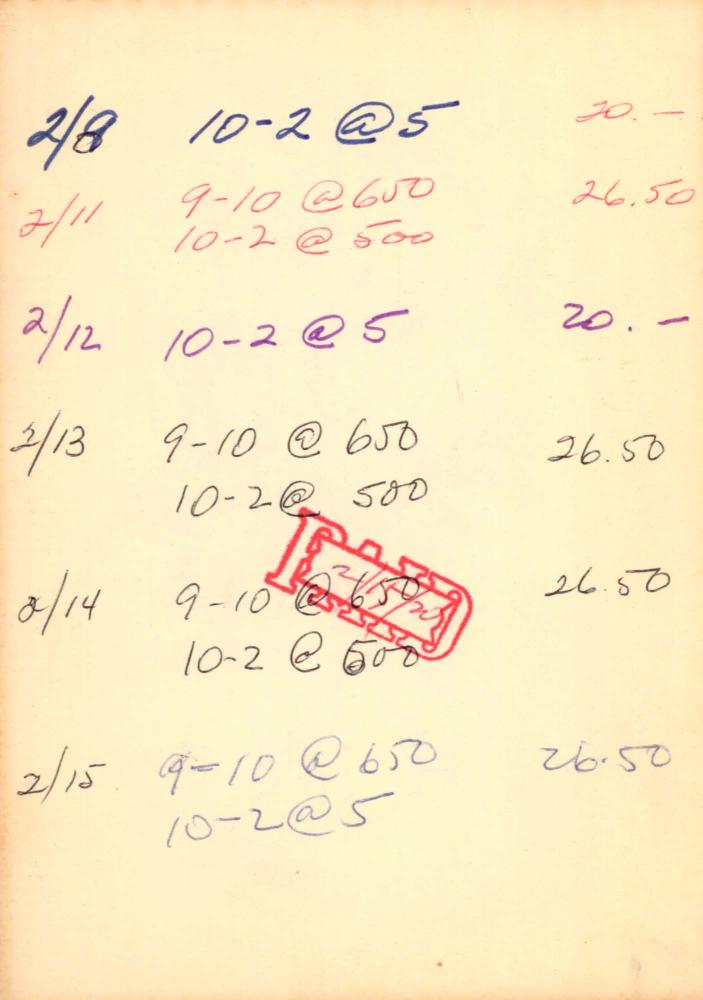 2/8 10-2 @ 5 20.—
2/11 9-10 @ 650 26.50
10-2 @ 500
2/12 10-2 @ 5 20.—
2/13 9-10 @ 650 26.50
10-2 @ 500
PAID
2/14 9-10 @ 650 26.50
10-2 @ 500
2/15 9-10 @ 650 26.50
10-2 @ 5